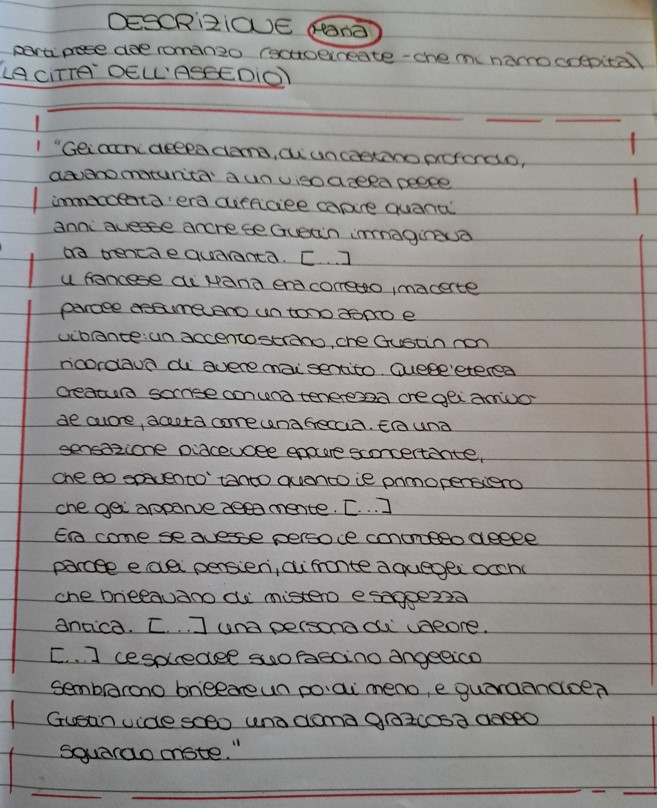 DESCRIZIONE Hana
parti prese dal romanzo (sottolineate - che mi hanno colpita)
(LA CITTÀ DELL'ASSEDIO)
"Gli occhi della dama, di un castano profondo,
davano maturità a un viso dalla pelle
immacolata: era difficile capire quanti
anni avesse anche se Gustin immaginava
tra trenta e quaranta. [...]
Il francese di Hana era corretto, ma certe
parole assumevano un tono aspro e
vibrante: un accento strano, che Gustin non
ricordava di avere mai sentito. Quell'eterea
creatura sorrise con una tenerezza che gli arrivò
al cuore, acuta come una freccia. Era una
sensazione piacevole eppure sconcertante,
che lo spaventò tanto quanto il primo pensiero
che gli apparve alla mente. [...]
Era come se avesse perso il controllo delle
parole e dei pensieri, di fronte a quegli occhi
che brillavano di mistero e saggezza
antica. [...] una persona di valore.
[...] Le spire del suo fascino angelico
sembrarono brillare un po' di meno, e guardandola
Gustin vide solo una donna graziosa dallo
sguardo triste."